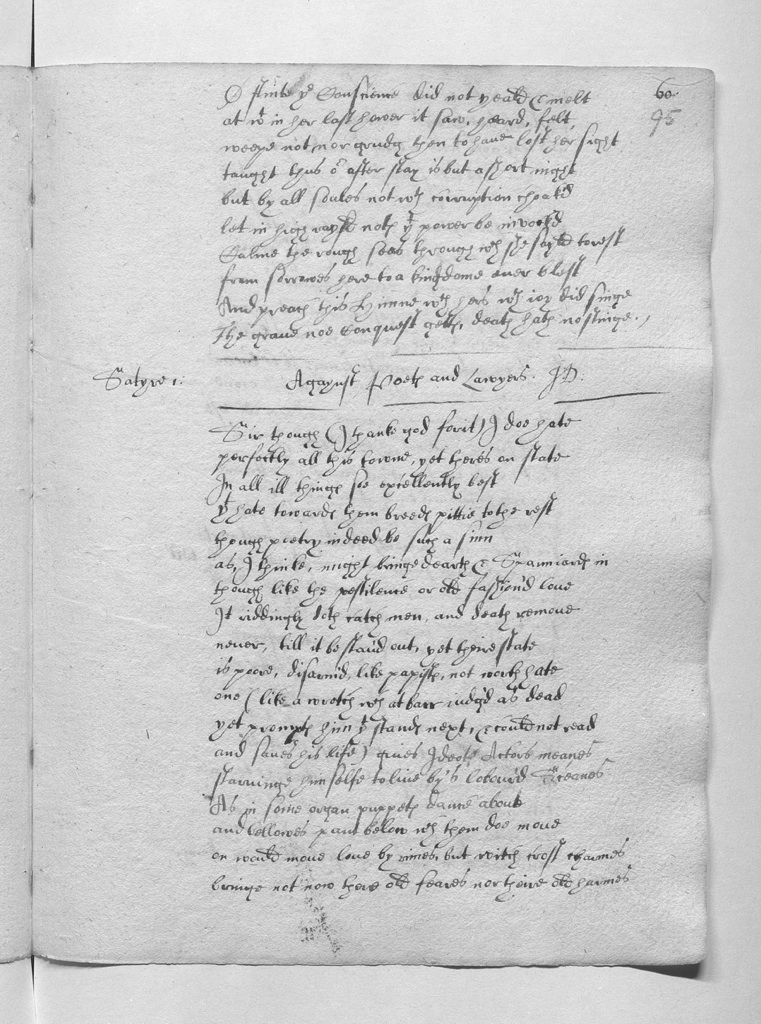 60
95
O stinte yt Conscience did not yeald & melt
at wt in her last hower it saw, heard, felt
weepe not nor grudg then to haue lost her sight
taught thus or after stay is but a short night
but by all soules not wth corruption choak'd
let in high rays'd notes yt power be invok'd
Calme the rough seas through wch she sayld to rest
from sorrowes here to a kingdome euer blest
And preach this Himne wth hers wth ioy did singe
The graue noe Conquest getts, death hath no stinge.
Satyre 1:
Agaynst Poets and Lawyers. J D.
Sir though (I thanke god for it) I doe hate
perfectly all this towne, yet theres on state
In all ill things soe excellently best
yt hate towards them breeds pittie to the rest
though poetry indeed be such a sinn
as, I thinke, might bringe dearth & Spanniards in
though like the pestilence or old fashiond loue
It riddingly doth catch men, and death remoue
neuer, till it be staru'd out, yet theire state
is poore, disarmd, like papists, not worth hate
one (like a wretch wch at barr iudg'd as dead
yet prompts him yt stands next, & could not read
and saues his life) giues Ideots Actors meanes
starvinge himselfe to liue by's labour'd Sceanes
As in some organ puppets dance aboue
and bellowes pant below wch them doe moue
on would moue loue by rimes, but witch crost charmes
bringe not now there old feares nor theire old harmes